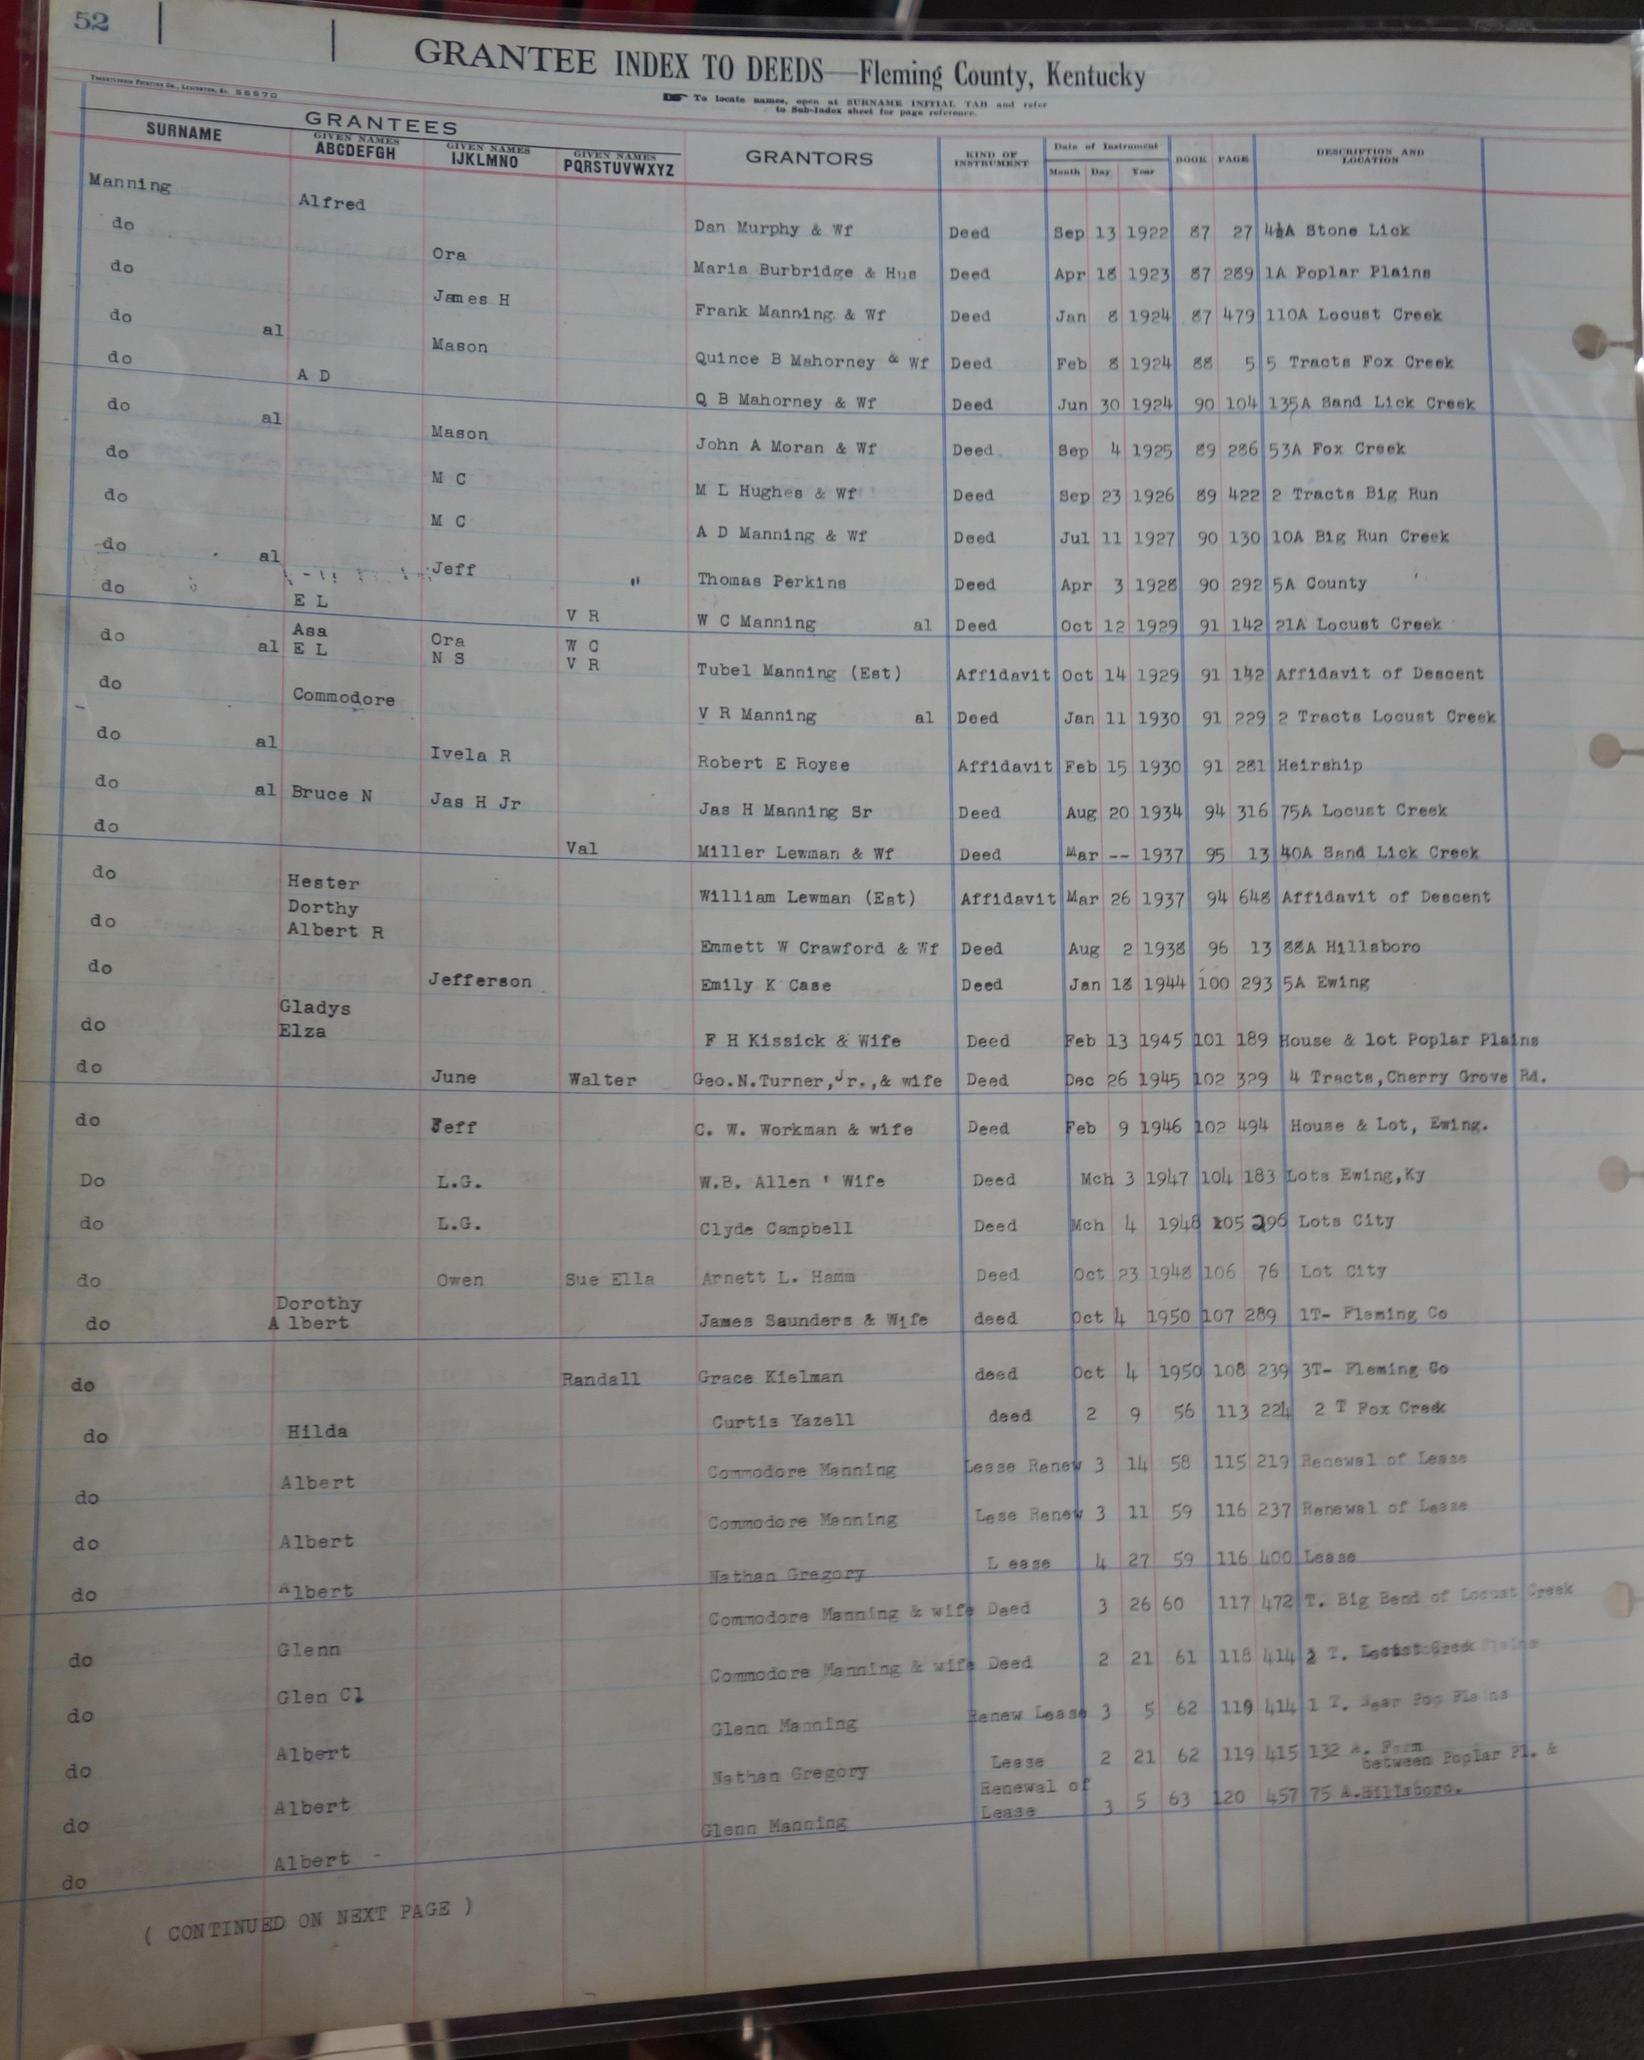 52
GRANTEE INDEX TO DEEDS—Fleming County, Kentucky
TRANSYLVANIA PRINTING CO., LEXINGTON, KY. 55570
To locate names, open at SURNAME INITIAL TAB and refer
to Sub-Index sheet for page reference.
GRANTEES
SURNAME
GIVEN NAMES ABCDEFGH
GIVEN NAMES IJKLMNO
GIVEN NAMES PQRSTUVWXYZ
GRANTORS
KIND OF INSTRUMENT
Date of Instrument
Month Day Year
BOOK PAGE
DESCRIPTION AND LOCATION
Manning Alfred Dan Murphy & Wf Deed Sep 13 1922 87 27 4½A Stone Lick
do Ora Maria Burbridge & Hus Deed Apr 18 1923 87 289 1A Poplar Plains
do James H Frank Manning & Wf Deed Jan 8 1924 87 479 110A Locust Creek
do al Mason Quince B Mahorney & Wf Deed Feb 8 1924 88 5 5 Tracts Fox Creek
do A D Q B Mahorney & Wf Deed Jun 30 1924 90 104 135A Sand Lick Creek
do al Mason John A Moran & Wf Deed Sep 4 1925 89 286 53A Fox Creek
do M C M L Hughes & Wf Deed Sep 23 1926 89 422 2 Tracts Big Run
do M C A D Manning & Wf Deed Jul 11 1927 90 130 10A Big Run Creek
do al Jeff Thomas Perkins Deed Apr 3 1928 90 292 5A County
do E L V R W C Manning al Deed Oct 12 1929 91 142 21A Locust Creek
Asa Ora W C
do al E L N S V R Tubel Manning (Est) Affidavit Oct 14 1929 91 142 Affidavit of Descent
do Commodore V R Manning al Deed Jan 11 1930 91 229 2 Tracts Locust Creek
do al Ivela R Robert E Royse Affidavit Feb 15 1930 91 281 Heirship
do al Bruce N Jas H Jr Jas H Manning Sr Deed Aug 20 1934 94 316 75A Locust Creek
do Val Miller Lewman & Wf Deed Mar -- 1937 95 13 40A Sand Lick Creek
do Hester William Lewman (Est) Affidavit Mar 26 1937 94 648 Affidavit of Descent
Dorthy
do Albert R Emmett W Crawford & Wf Deed Aug 2 1938 96 13 88A Hillsboro
do Jefferson Emily K Case Deed Jan 18 1944 100 293 5A Ewing
Gladys
do Elza F H Kissick & Wife Deed Feb 13 1945 101 189 House & lot Poplar Plains
do June Walter Geo.N.Turner,Jr.,& wife Deed Dec 26 1945 102 329 4 Tracts,Cherry Grove Rd.
do Jeff C. W. Workman & wife Deed Feb 9 1946 102 494 House & Lot, Ewing.
Do L.G. W.B. Allen ' Wife Deed Mch 3 1947 104 183 Lots Ewing,Ky
do L.G. Clyde Campbell Deed Mch 4 1948 105 296 Lots City
do Owen Sue Ella Arnett L. Hamm Deed Oct 23 1948 106 76 Lot City
Dorothy
do A lbert James Saunders & Wife deed Oct 4 1950 107 289 1T- Fleming Co
do Randall Grace Kielman deed Oct 4 1950 108 239 3T- Fleming Co
do Hilda Curtis Yazell deed 2 9 56 113 224 2 T Fox Creek
do Albert Commodore Manning Lease Renew 3 14 58 115 219 Renewal of Lease
do Albert Commodore Manning Lese Renew 3 11 59 116 237 Renewal of Lease
do Albert Nathan Gregory L ease 4 27 59 116 400 Lease
do Glenn Commodore Manning & wife Deed 3 26 60 117 472 T. Big Bend of Locust Creek
do Glen Cl Commodore Manning & wife Deed 2 21 61 118 414 2 T. Locust Creek
do Albert Glenn Manning Renew Lease 3 5 62 119 414 1 T. Near Pop Plains
do Albert Nathan Gregory Lease 2 21 62 119 415 132 A. Farm
between Poplar Pl. &
do Albert Glenn Manning Renewal of Lease 3 5 63 120 457 75 A.Hillsboro.
do
( CONTINUED ON NEXT PAGE )